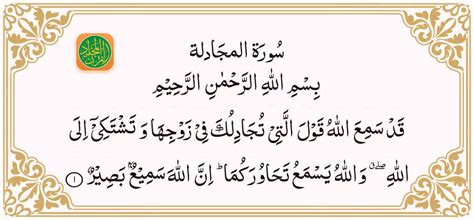 سُورَة المجادلة
بِسْمِ اللهِ الرَّحْمٰنِ الرَّحِيْمِ
قَدْ سَمِعَ اللّٰهُ قَوْلَ الَّتِيْ تُجَادِلُكَ فِيْ زَوْجِهَا وَ تَشْتَكِيْۤ اِلَى
اللّٰهِ ۖۗ وَاللّٰهُ يَسْمَعُ تَحَاوُرَكُمَا ؕ اِنَّ اللّٰهَ سَمِيْعٌۢ بَصِيْرٌ ۝۱